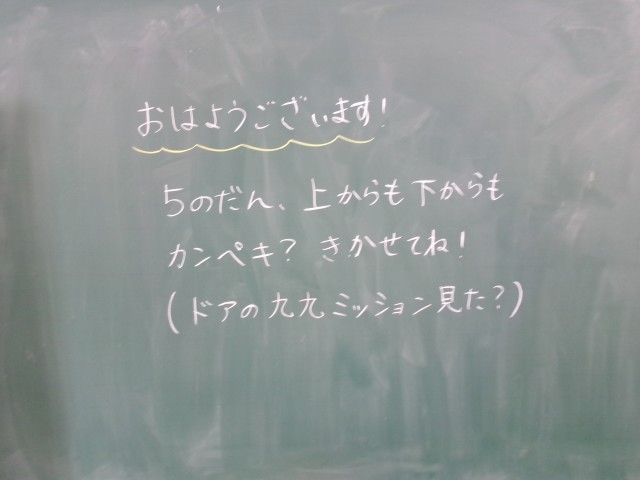 おはようございます!
5のだん、上からも下からも
カンペキ? きかせてね!
(ドアの九九ミッション見た?)